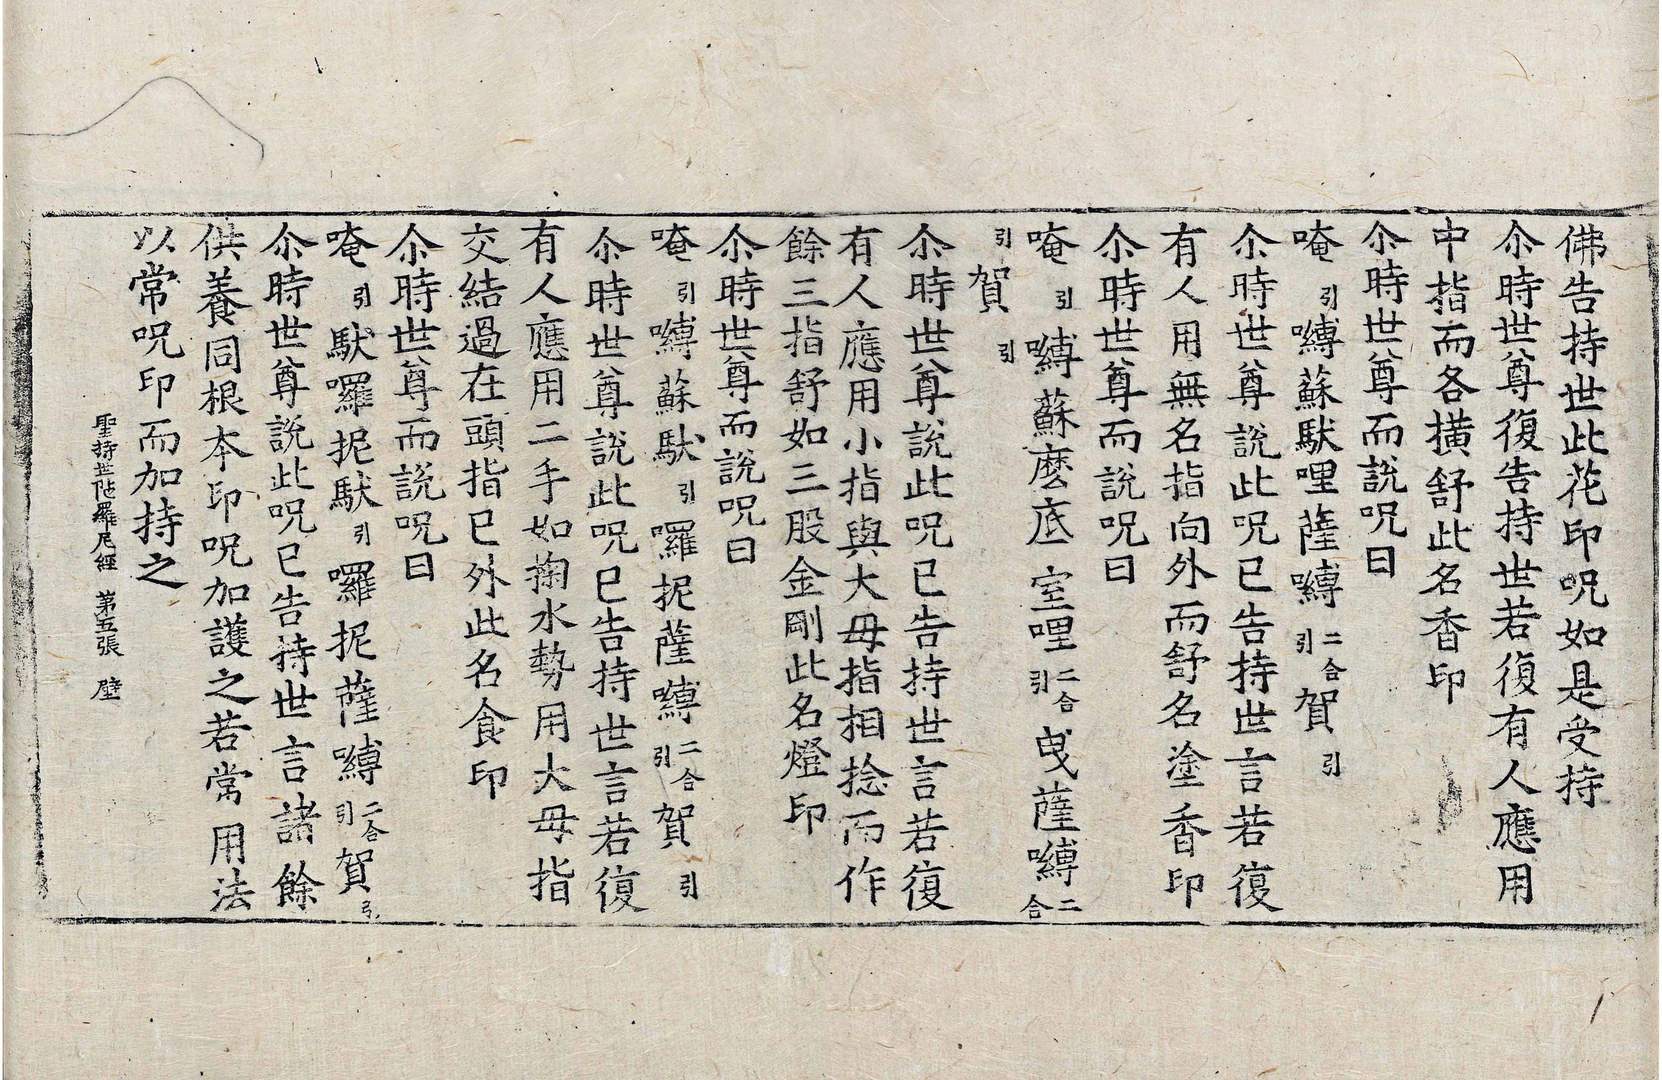 佛告持世此花印呪如是受持
尒時世尊復告持世若復有人應用
中指而各撗舒此名香印
尒時世尊而說呪曰
唵引嚩蘇馱哩薩嚩二合引賀引
尒時世尊說此呪已告持世言若復
有人用無名指向外而舒名塗香印
尒時世尊而說呪曰
唵引嚩蘇麼底室哩二合引曵薩嚩二合
引賀引
尒時世尊說此呪已告持世言若復
有人應用小指與大母指相捻而作
餘三指舒如三股金剛此名燈印
尒時世尊而說呪曰
唵引嚩蘇馱引囉抳薩嚩二合引賀引
尒時世尊說此呪已告持世言若復
有人應用二手如掬水勢用大母指
交結過在頭指已外此名食印
尒時世尊而說呪曰
唵引馱囉抳馱引囉抳薩嚩二合引賀引
尒時世尊說此呪已告持世言諸餘
供養同根本印呪加護之若常用法
以常呪印而加持之
聖持世陁羅尼經 第五張 壁